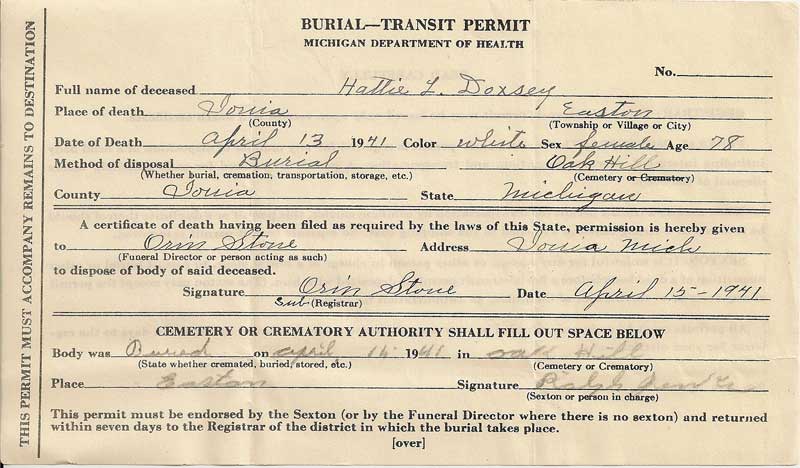 THIS PERMIT MUST ACCOMPANY REMAINS TO DESTINATION
BURIAL—TRANSIT PERMIT
MICHIGAN DEPARTMENT OF HEALTH
No.
Full name of deceased Hattie L. Doxsey
Place of death Ionia Easton
(County) (Township or Village or City)
Date of Death April 13 1941 Color white Sex female Age 78
Method of disposal Burial Oak Hill
(Whether burial, cremation, transportation, storage, etc.) (Cemetery or Crematory)
County Ionia State Michigan
A certificate of death having been filed as required by the laws of this State, permission is hereby given
to Orin Stone Address Ionia Mich
(Funeral Director or person acting as such)
to dispose of body of said deceased.
Signature Orin Stone Date April 15-1941
Sub (Registrar)
CEMETERY OR CREMATORY AUTHORITY SHALL FILL OUT SPACE BELOW
Body was Buried on April 1941 in Oak Hill
(State whether cremated, buried, stored, etc.) (Cemetery or Crematory)
Place Easton Signature Ralph
(Sexton or person in charge)
This permit must be endorsed by the Sexton (or by the Funeral Director where there is no sexton) and returned
within seven days to the Registrar of the district in which the burial takes place.
[over]